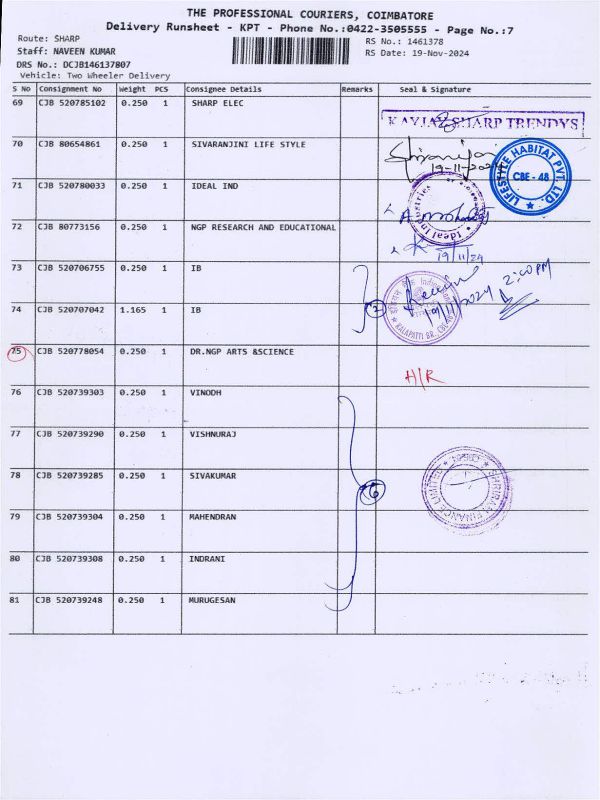 THE PROFESSIONAL COURIERS, COIMBATORE
Delivery Runsheet - KPT - Phone No.:0422-3505555 - Page No.:7
Route: SHARP
Staff: NAVEEN KUMAR
DRS No.: DCJB146137807
Vehicle: Two Wheeler Delivery
RS No.: 1461378
RS Date: 19-Nov-2024
S No Consignment No Weight PCS Consignee Details Remarks Seal & Signature
69 CJB 520785102 0.250 1 SHARP ELEC
KAYJAY SHARP TRENDYS
70 CJB 80654861 0.250 1 SIVARANJINI LIFE STYLE
19-11-2024
LIFESTYLE HABITAT PVT LTD.
CBE - 48
71 CJB 520780033 0.250 1 IDEAL IND
Ideal Industries
72 CJB 80773156 0.250 1 NGP RESEARCH AND EDUCATIONAL
19/11/24
73 CJB 520706755 0.250 1 IB
2:40 PM
19/11/2024
74 CJB 520707042 1.165 1 IB
2
KALAPATTI BR.,
75 CJB 520778054 0.250 1 DR.NGP ARTS &SCIENCE
H/R
76 CJB 520739303 0.250 1 VINODH
77 CJB 520739290 0.250 1 VISHNURAJ
78 CJB 520739285 0.250 1 SIVAKUMAR
6
SHRIRAM FINANCE LIMITED
79 CJB 520739304 0.250 1 MAHENDRAN
80 CJB 520739308 0.250 1 INDRANI
81 CJB 520739248 0.250 1 MURUGESAN